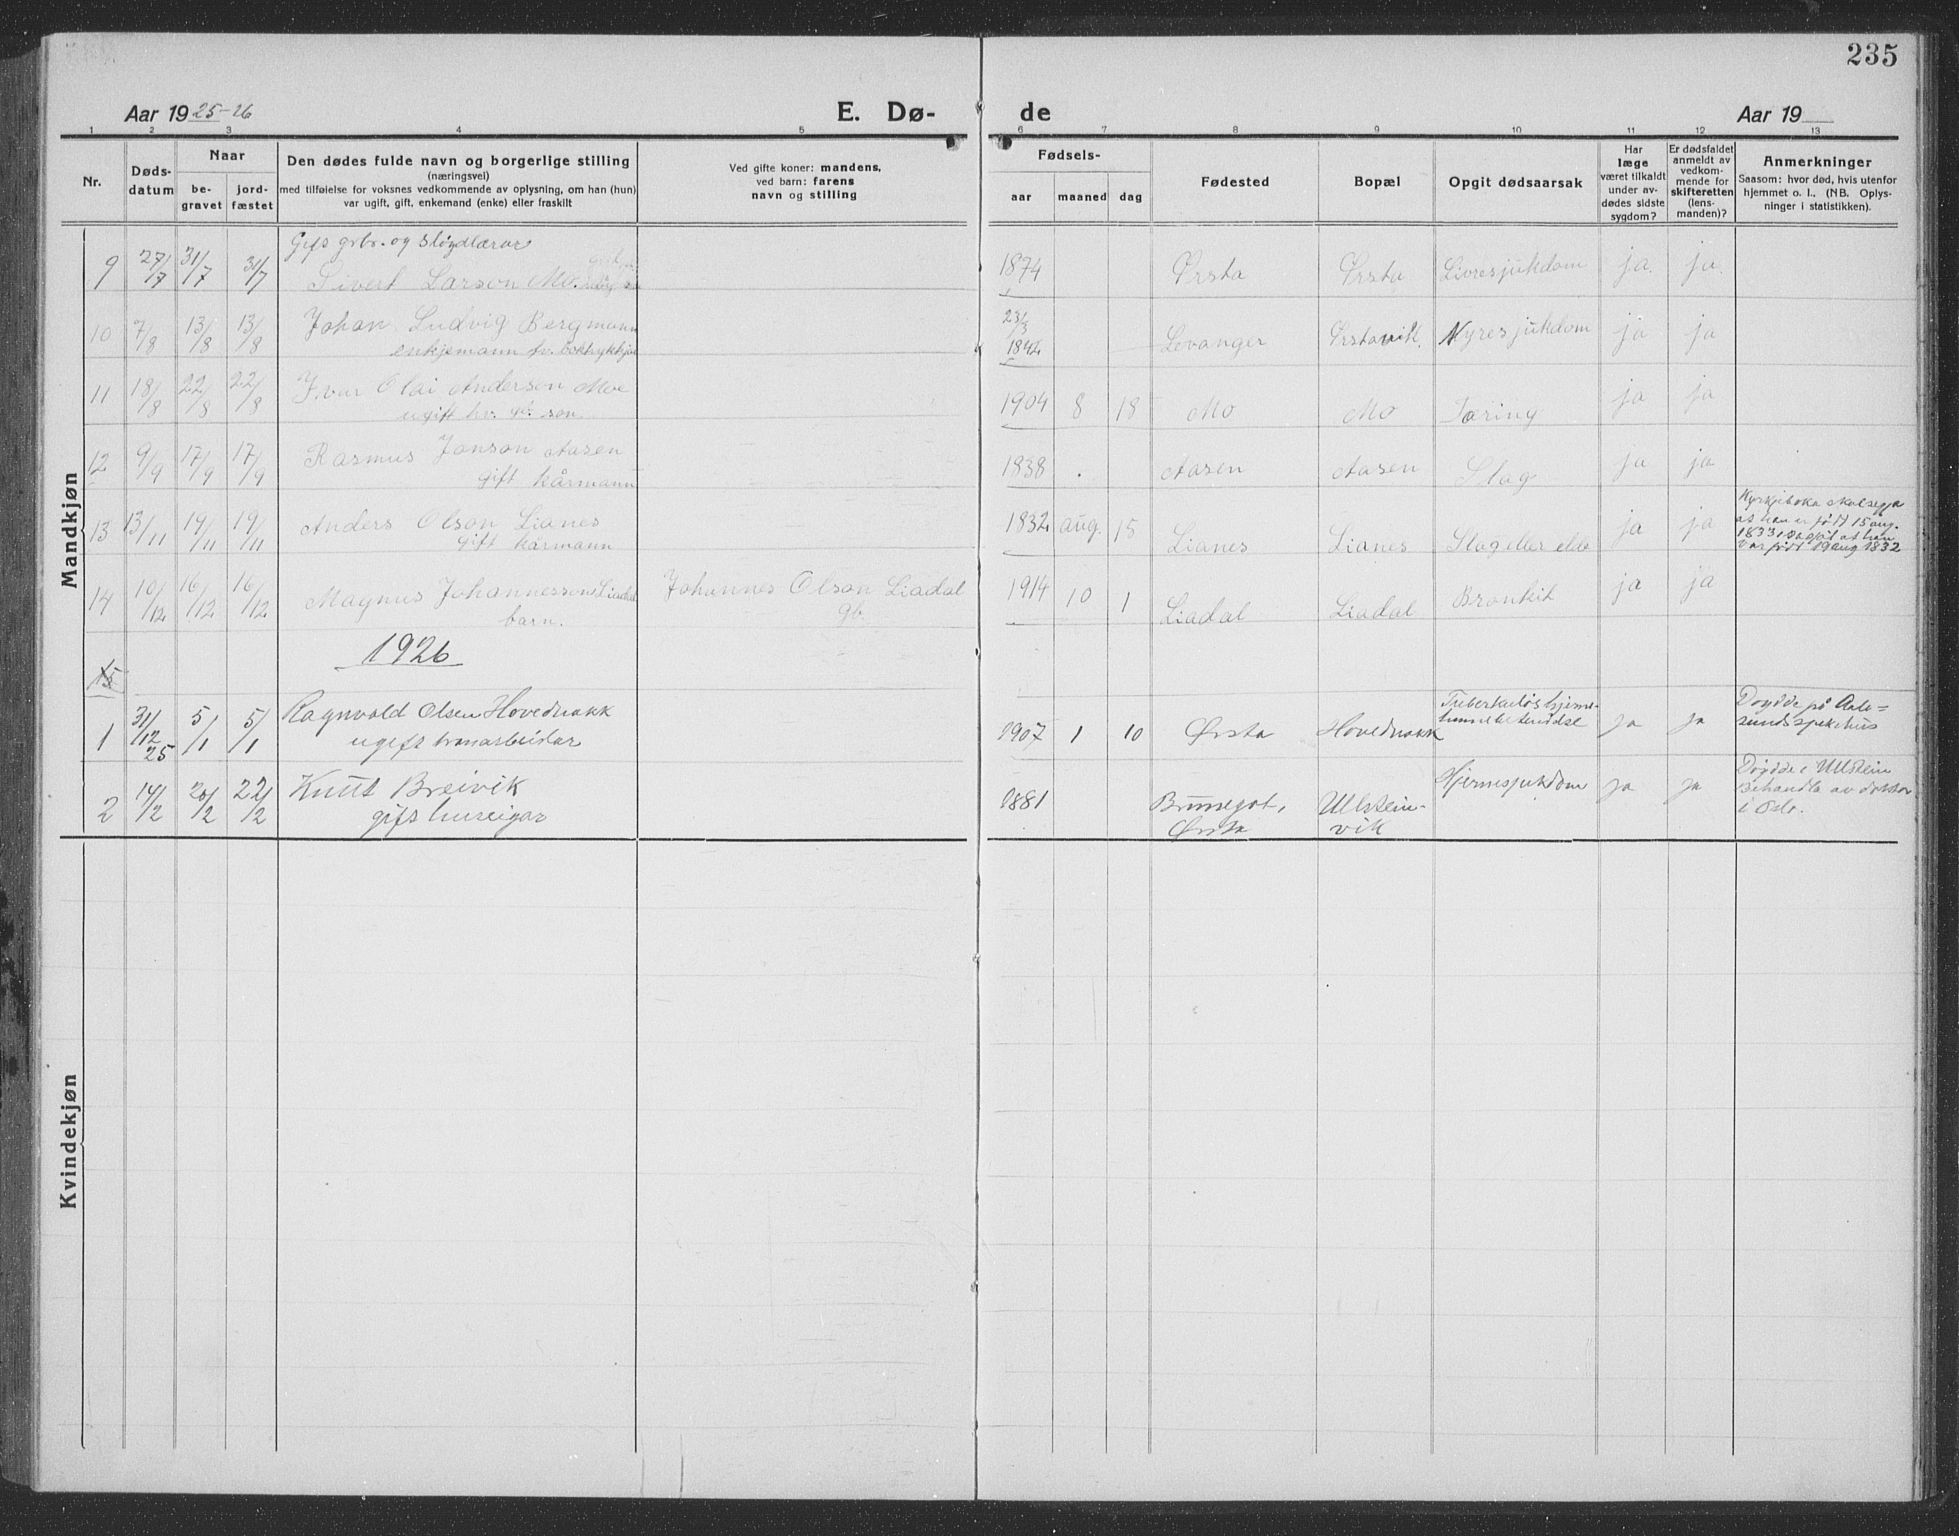 235
Aar 1925-26 E. Dø- de Aar 19
1 2 3 4 5 6 7 8 9 10 11 12 13
Nr.
Døds-
datum
Naar
be-
gravet
jord-
fæstet
Den dødes fulde navn og borgerlige stilling
(næringsvei)
med tilføielse for voksnes vedkommende av oplysning, om han (hun)
var ugift, gift, enkemand (enke) eller fraskilt
Ved gifte koner: mandens,
ved barn: farens
navn og stilling
Fødsels-
aar maaned dag
Fødested
Bopæl
Opgit dødsaarsak
Har
læge
været tilkaldt
under av-
dødes sidste
sygdom?
Er dødsfaldet
anmeldt av
vedkom-
mende for
skifteretten
(lens-
manden)?
Anmerkninger
Saasom: hvor død, hvis utenfor
hjemmet o. l., (NB. Oplys-
ninger i statistikken).
Mandkjøn
Gift gbr. og sløydlærar
9 27/7 31/7 31/7 Sivert Larson Mo. 1874 Ørsta Ørsta Livresjukdom ja. ja.
10 7/8 13/8 13/8 Johan Ludvig Bergmann 23/3 1842 Levanger Ørstavik. Nyresjukdom ja ja
enkjemann fv. boktrykkjar
11 18/8 22/8 22/8 Ivar Olai Anderson Moe 1904 8 18 Mo Mo Tæring ja ja
ugift hv. gb. son.
12 9/9 17/9 17/9 Rasmus Janson Aasen 1838 Aasen Aasen Slag ja ja
gift kårmann
13 13/11 19/11 19/11 Anders Olson Lianes 1832 aug. 15 Lianes Lianes Slag eller elde ja ja
gift kårmann
Kyrkjeboka
at han er født 15 aug.
1833, at han
var født 19 aug 1832
14 10/12 16/12 16/12 Magnus Johannesson Liadal Johannes Olson Liadal 1914 10 1 Liadal Liadal Bronkit ja ja
barn. gb.
1926
15
1 31/12 25 5/1 5/1 Ragnvald Olsen Hovednakk 1907 1 10 Ørsta Hovednakk Tuberkuløs hjerne-
hinnebetendelse ja ja Døydde på Aale-
sund sjukehus
ugift tranarbeidar
2 14/2 20/2 22/2 Knut Breivik 1881 Brunegot, Ørsta Ulstein-
vik Hjernesjukdom ja ja Døydde i Ulstein
Behandla av doktor
i Oslo.
gift huseigar
Kvindekjøn